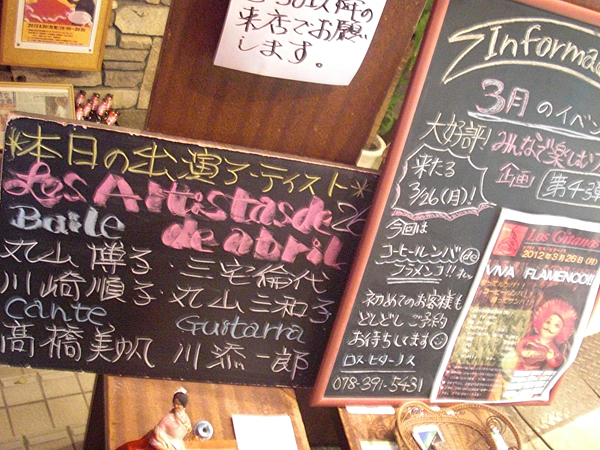 来店でお願い
します。
*本日の出演アーティスト*
Los Artistas de 26
de abril
Baile
丸山 博子・三宅倫代
川崎順子・丸山三和子
Cante
Guitarra
高橋美帆 川添一郎
Informa
3月のイベン
大好評!
みんなで楽しむ
企画
第4弾
来たる
3/26(月)!
今回は
コーヒールンバ de
フラメンコ!!
初めてのお客様も
どしどしご予約
お待ちしてます
ロスヒターノス
078-391-5431
Los Gitanos
2012年3月26日(月)
VIVA FLAMENCO!!